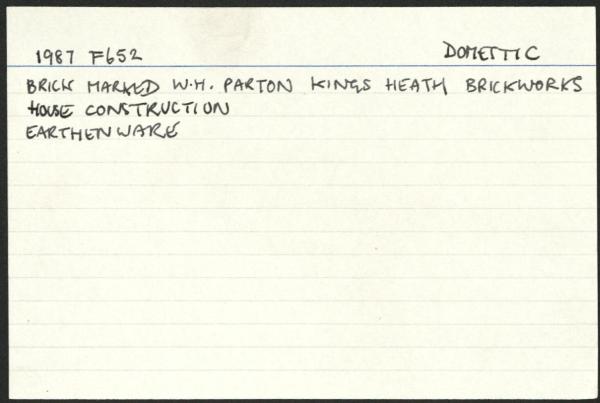 1987 F652 DOMETTIC
BRICK MARKED W.H. PARTON KINGS HEATH BRICKWORKS
HOUSE CONSTRUCTION
EARTHENWARE